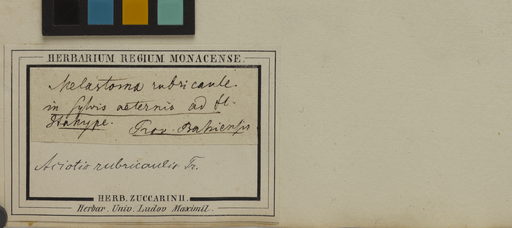 HERBARIUM REGIUM MONACENSE.
Melastoma rubricaule.
in sylvis aeternis ad fl.
Itahype. Prov. Bahiensis.
Aciotis rubricaulis Tr.
HERB. ZUCCARINII.
Herbar. Univ. Ludov. Maximil.